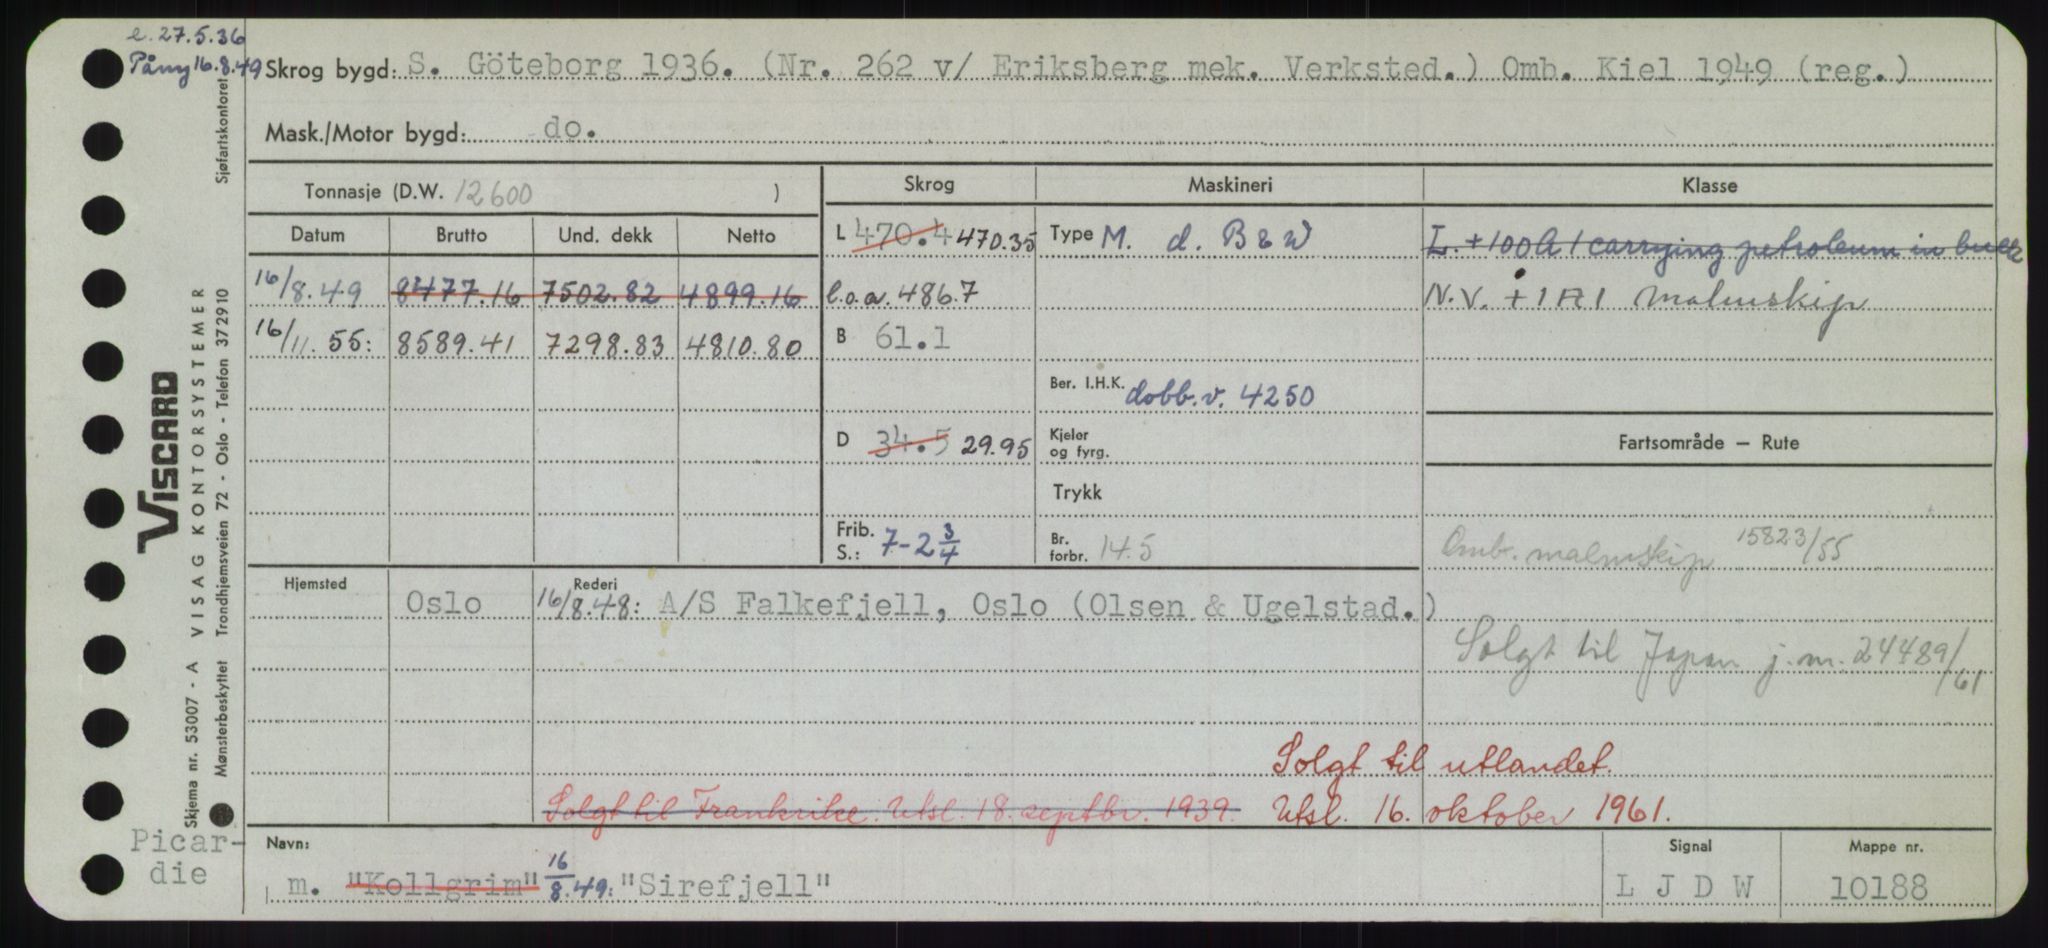 e. 27.5.36
Påny 16.8.49
Skrog bygd: S. Göteborg 1936. (Nr. 262 v/ Eriksberg mek. Verksted.) Omb. Kiel 1949 (reg.)
Mask./Motor bygd: do.
Tonnasje (D.W. 12600 )
Skrog
Maskineri
Klasse
Datum
Brutto
Und. dekk
Netto
L 470.4 470.35
Type M. d. B & W
L. +100A1 carrying petroleum in bulk
16/8.49 8477.16 7502.82 4899.16
l.o.a. 486.7
N.V. +1A1 Malmskip
16/11. 55: 8589.41 7298.83 4810.80
B 61.1
Ber. I.H.K. dobb.v. 4250
D 34.5 29.95
Kjeler og fyrg.
Fartsområde – Rute
Trykk
Frib. S.: 7-2 3/4
Br. forbr. 14.5
Omb. malmskip 15823/55
Hjemsted
Rederi
Oslo 16/8.48: A/S Falkefjell, Oslo (Olsen & Ugelstad.)
Solgt til Japan j.m. 24489/61
Solgt til utlandet.
Solgt til Frankrike. Utsl. 18. septbr. 1939. Utsl. 16. oktober 1961.
Picar-
die
Navn:
m. "Kollgrim" 16/8.49: "Sirefjell"
Signal
L J D W
Mappe nr.
10188
VISCARD
A VISAG KONTORSYSTEMER
Skjema nr. 53007 - A
Mønsterbeskyttet Trondhjemsveien 72 - Oslo - Telefon 372910
Sjøfartskontoret